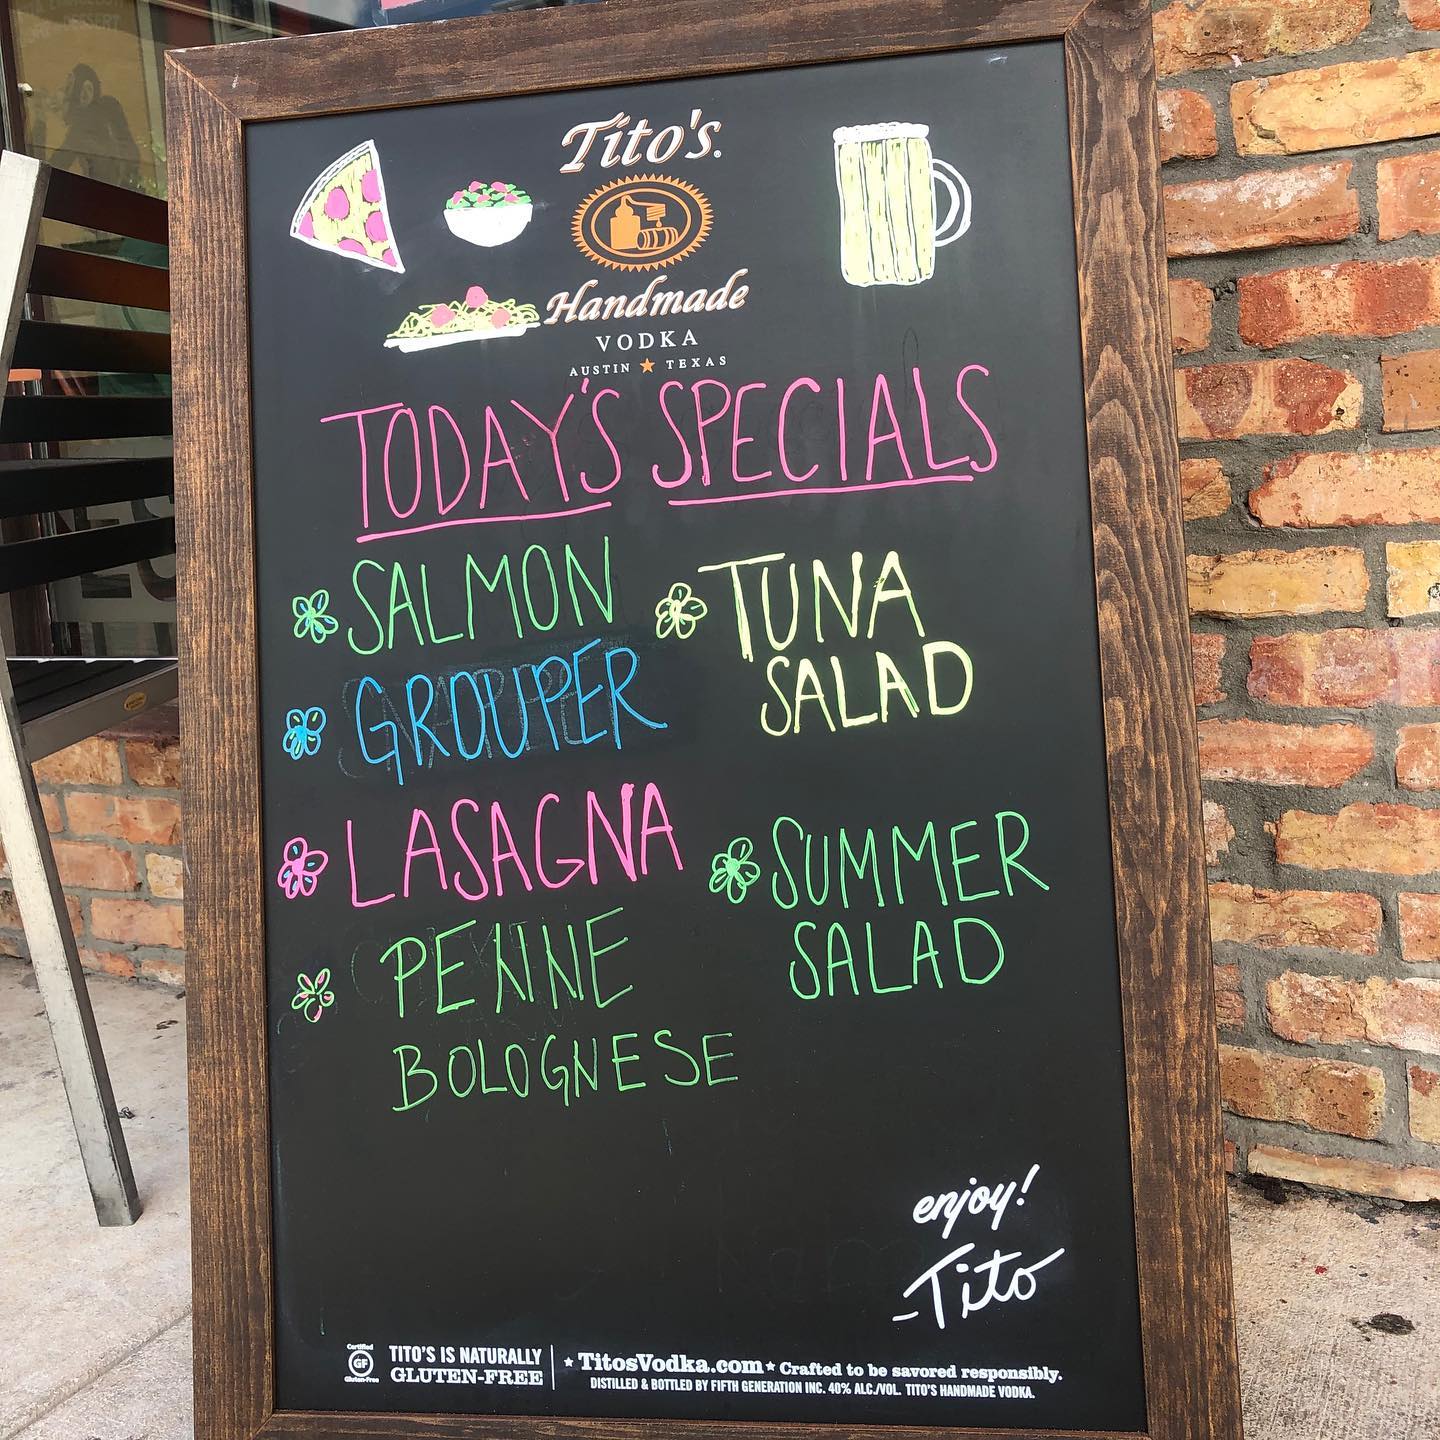 Tito's.
Handmade
VODKA
AUSTIN ★ TEXAS
TODAY'S SPECIALS
SALMON
GROUPER
LASAGNA
PENNE
BOLOGNESE
TUNA
SALAD
SUMMER
SALAD
enjoy!
-Tito
Certified
GF
Gluten-Free
TITO'S IS NATURALLY
GLUTEN-FREE
★ TitosVodka.com ★ Crafted to be savored responsibly.
DISTILLED & BOTTLED BY FIFTH GENERATION INC. 40% ALC./VOL. TITO'S HANDMADE VODKA.